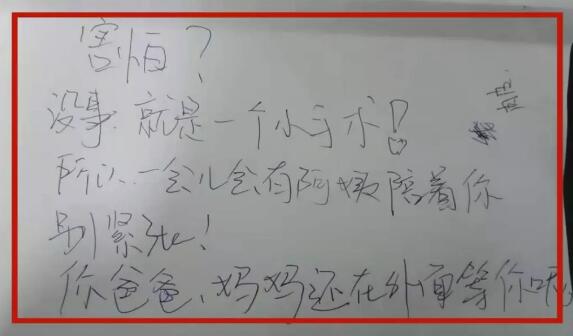 害怕？
没事、就是一个小手术！
所以一会儿会有阿姨陪着你
别紧张！
你爸爸、妈妈还在外面等你呢